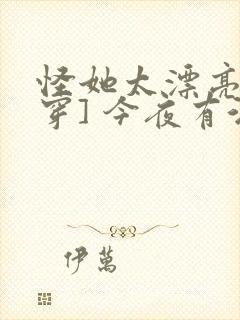 怪她太漂亮
穿] 今夜有
伊萬